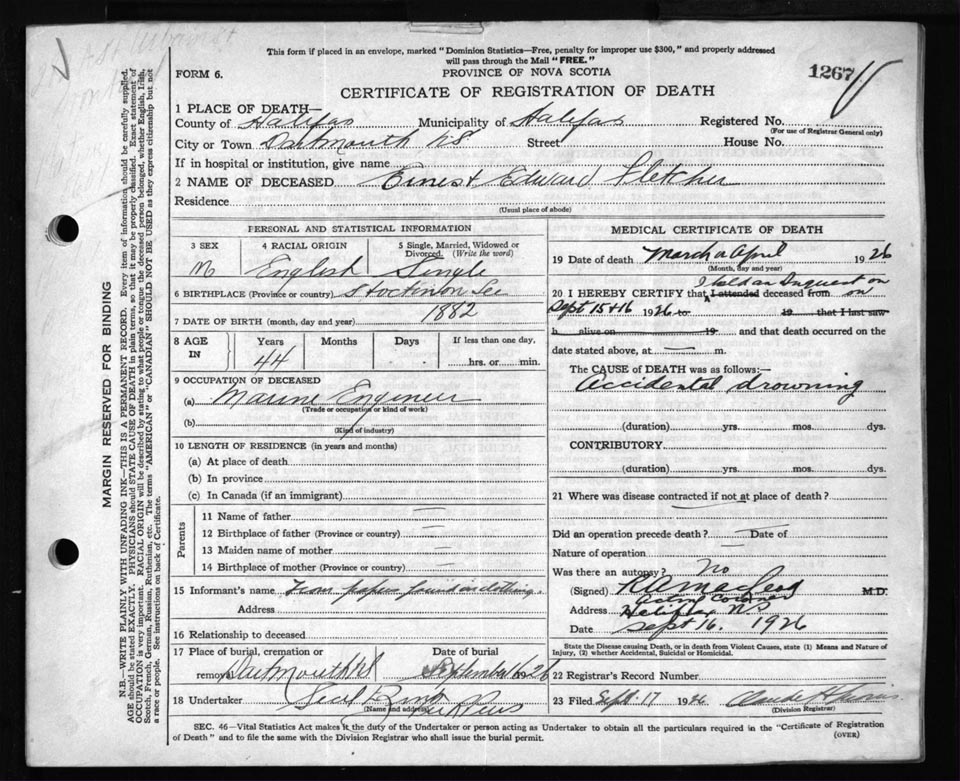 This form if placed in an envelope, marked "Dominion Statistics—Free, penalty for improper use $300," and properly addressed
will pass through the Mail "FREE."
FORM 6.
PROVINCE OF NOVA SCOTIA
1267
CERTIFICATE OF REGISTRATION OF DEATH
1 PLACE OF DEATH—
County of Halifax Municipality of Halifax Registered No.
(For use of Registrar General only)
City or Town Dartmouth NS Street House No.
If in hospital or institution, give name
2 NAME OF DECEASED Ernest Edward Fletcher
Residence
(Usual place of abode)
PERSONAL AND STATISTICAL INFORMATION
3 SEX 4 RACIAL ORIGIN 5 Single, Married, Widowed or Divorced. (Write the word)
M English Single
6 BIRTHPLACE (Province or country) Stockton
7 DATE OF BIRTH (month, day and year) 1882
8 AGE IN Years Months Days If less than one day,
44 hrs. or min.
9 OCCUPATION OF DECEASED
(a) Marine Engineer
(Trade or occupation or kind of work)
(b)
(Kind of industry)
10 LENGTH OF RESIDENCE (in years and months)
(a) At place of death
(b) In province
(c) In Canada (if an immigrant)
Parents
11 Name of father
12 Birthplace of father (Province or country)
13 Maiden name of mother
14 Birthplace of mother (Province or country)
15 Informant's name From papers found in clothing.
Address
16 Relationship to deceased
17 Place of burial, cremation or removal Dartmouth NS Date of burial September 16 1926
18 Undertaker
(Name and address)
MEDICAL CERTIFICATE OF DEATH
19 Date of death March or April 1926
(Month, day and year)
I held an Inquest on
20 I HEREBY CERTIFY that I attended deceased from on
Sept 15 + 16 1926 to 19 that I last saw
h alive on 19 and that death occurred on
date stated above, at — m.
The CAUSE of DEATH was as follows:
Accidental drowning
(duration) yrs. mos. dys.
CONTRIBUTORY
(duration) yrs. mos. dys.
21 Where was disease contracted if not at place of death?
Did an operation precede death? Date of
Nature of operation
Was there an autopsy? No
(Signed) M.D.
Acting Coroner
Address Halifax, NS
Date Sept 16. 1926
State the Disease causing Death, or in death from Violent Causes, state (1) Means and Nature of
Injury, (2) whether Accidental, Suicidal or Homicidal.
22 Registrar's Record Number
23 Filed Sept 17 1926
(Division Registrar)
SEC. 46—Vital Statistics Act makes it the duty of the Undertaker or person acting as Undertaker to obtain all the particulars required in the "Certificate of Registration
of Death" and to file the same with the Division Registrar who shall issue the burial permit.
(OVER)
MARGIN RESERVED FOR BINDING
N.B.—WRITE PLAINLY WITH UNFADING INK—THIS IS A PERMANENT RECORD. Every item of information should be carefully supplied.
AGE should be stated EXACTLY. PHYSICIANS should STATE CAUSE OF DEATH in plain terms, so that it may be properly classified. Exact statement of
OCCUPATION is very important. RACIAL ORIGIN will be described by stating to what people or tongue the deceased person belonged, whether English, Irish,
Scotch, French, German, Russian, Ruthenian, etc. The terms "AMERICAN" or "CANADIAN" SHOULD NOT BE USED as they express citizenship but not
a race or people. See instructions on back of Certificate.